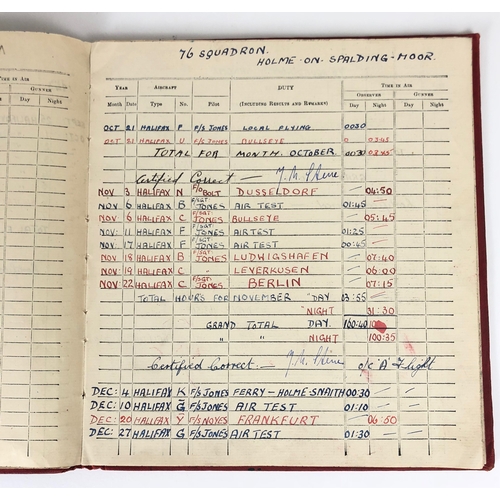 76 SQUADRON.
HOLME-ON-SPALDING-MOOR.
TIME IN AIR
GUNNER
Day Night
YEAR AIRCRAFT DUTY TIME IN AIR
OBSERVER GUNNER
Month Date Type No. Pilot (INCLUDING RESULTS AND REMARKS) Day Night Day Night
OCT 21 HALIFAX F F/S JONES LOCAL FLYING 00:30
OCT 21 HALIFAX U F/S JONES BULLSEYE 03:45
TOTAL FOR MONTH OCTOBER 00:30 03:45
Certified Correct -
NOV 3 HALIFAX N F/O BOLT DUSSELDORF 04:50
NOV 6 HALIFAX B F/SGT JONES AIR TEST 01:45
NOV 6 HALIFAX C F/SGT JONES BULLSEYE 05:45
NOV: 11 HALIFAX F F/SGT JONES AIR TEST 01:25
NOV 17 HALIFAX F F/SGT JONES AIR TEST 00:45
NOV 18 HALIFAX B F/SGT JONES LUDWIGSHAFEN 07:40
NOV: 19 HALIFAX C - LEVERKUSEN 06:00
NOV: 22 HALIFAX C F/SGT JONES BERLIN 07:15
TOTAL HOURS FOR NOVEMBER "DAY 03:55
"NIGHT 31:30
GRAND TOTAL DAY. 160:40
" " NIGHT 100:35
Certified Correct:- o/c 'A' Flight
DEC: 4 HALIFAX K F/S JONES FERRY-HOLME-SNAITH 00:30
DEC: 10 HALIFAX G F/S JONES AIR TEST 01:10
DEC: 20 HALIFAX Y F/S NOYES FRANKFURT 06:50
DEC: 27 HALIFAX G F/S JONES AIR TEST 01:30